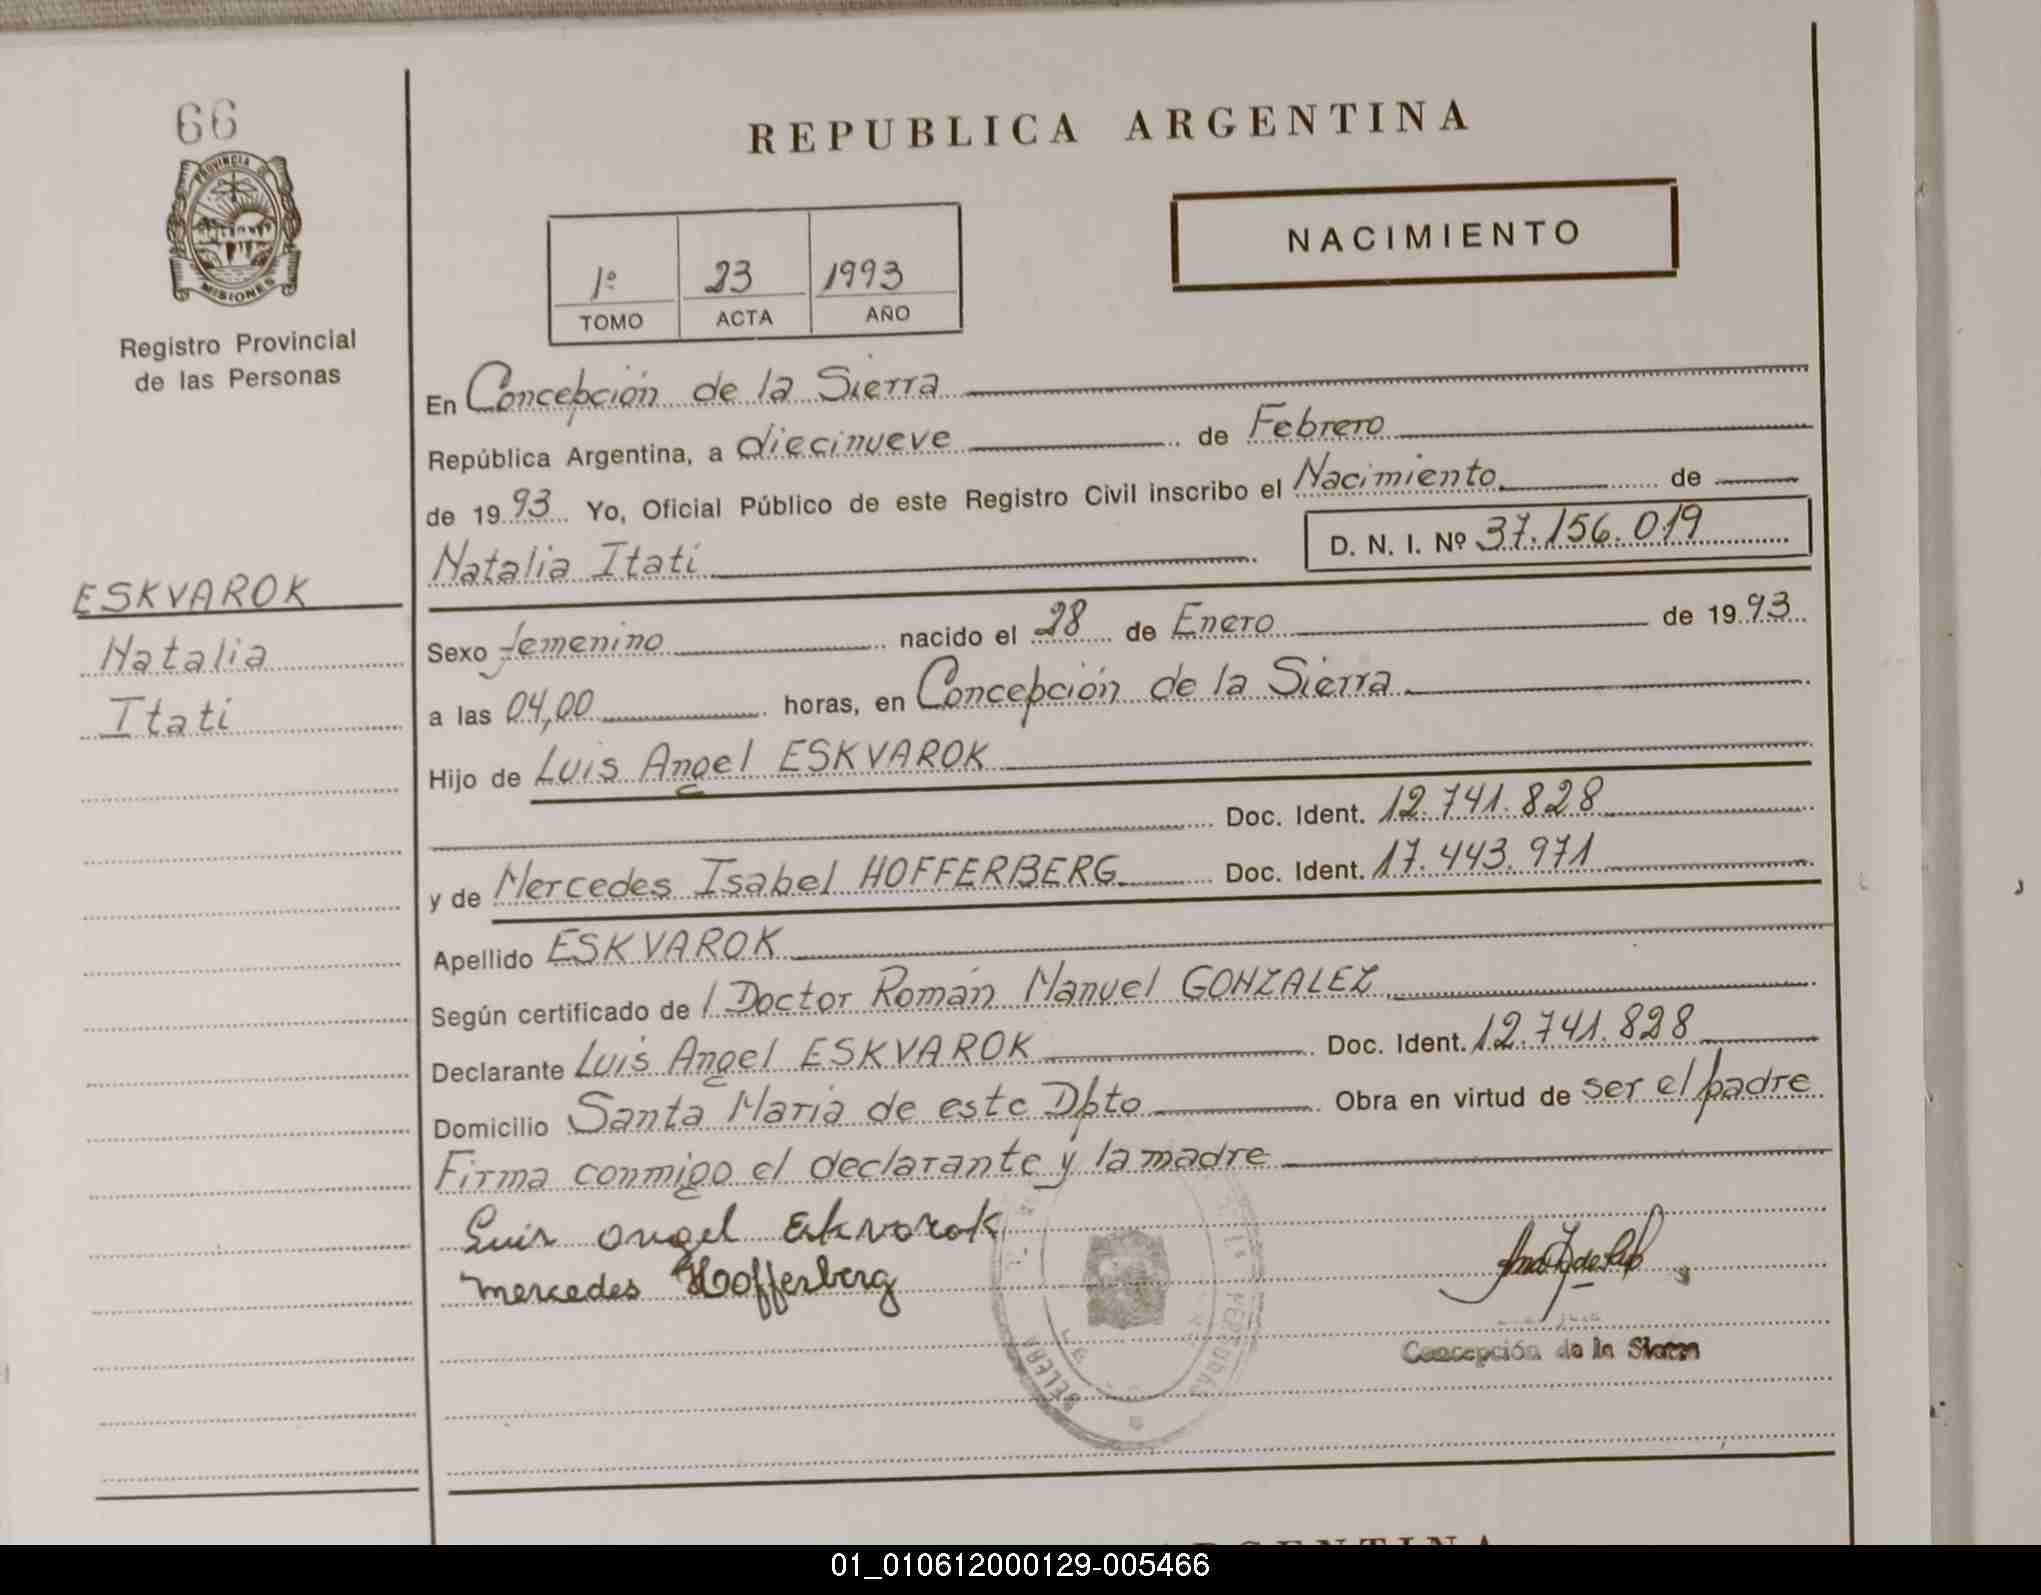 66
PROVINCIA DE
MISIONES
Registro Provincial
de las Personas
REPUBLICA ARGENTINA
NACIMIENTO
1º 23 1993
TOMO ACTA AÑO
En Concepción de la Sierra
República Argentina, a diecinueve de Febrero
de 1993 Yo, Oficial Público de este Registro Civil inscribo el Nacimiento de
Natalia Itati D. N. I. Nº 37.156.019
ESKVAROK
Natalia
Itati
Sexo femenino nacido el 28 de Enero de 1993
a las 04,00 horas, en Concepción de la Sierra
Hijo de Luis Angel ESKVAROK
Doc. Ident. 12.741.828
y de Mercedes Isabel HOFFERBERG Doc. Ident. 17.443.971
Apellido ESKVAROK
Según certificado de l Doctor Román Manuel GONZALEZ
Declarante Luis Angel ESKVAROK Doc. Ident. 12.741.828
Domicilio Santa Maria de este Dpto Obra en virtud de ser el padre
Firma conmigo el declarante y la madre
Luis Angel Eskvarok
mercedes Hofferberg
Concepción de la Sierra
ARGENTINA
01_010612000129-005466